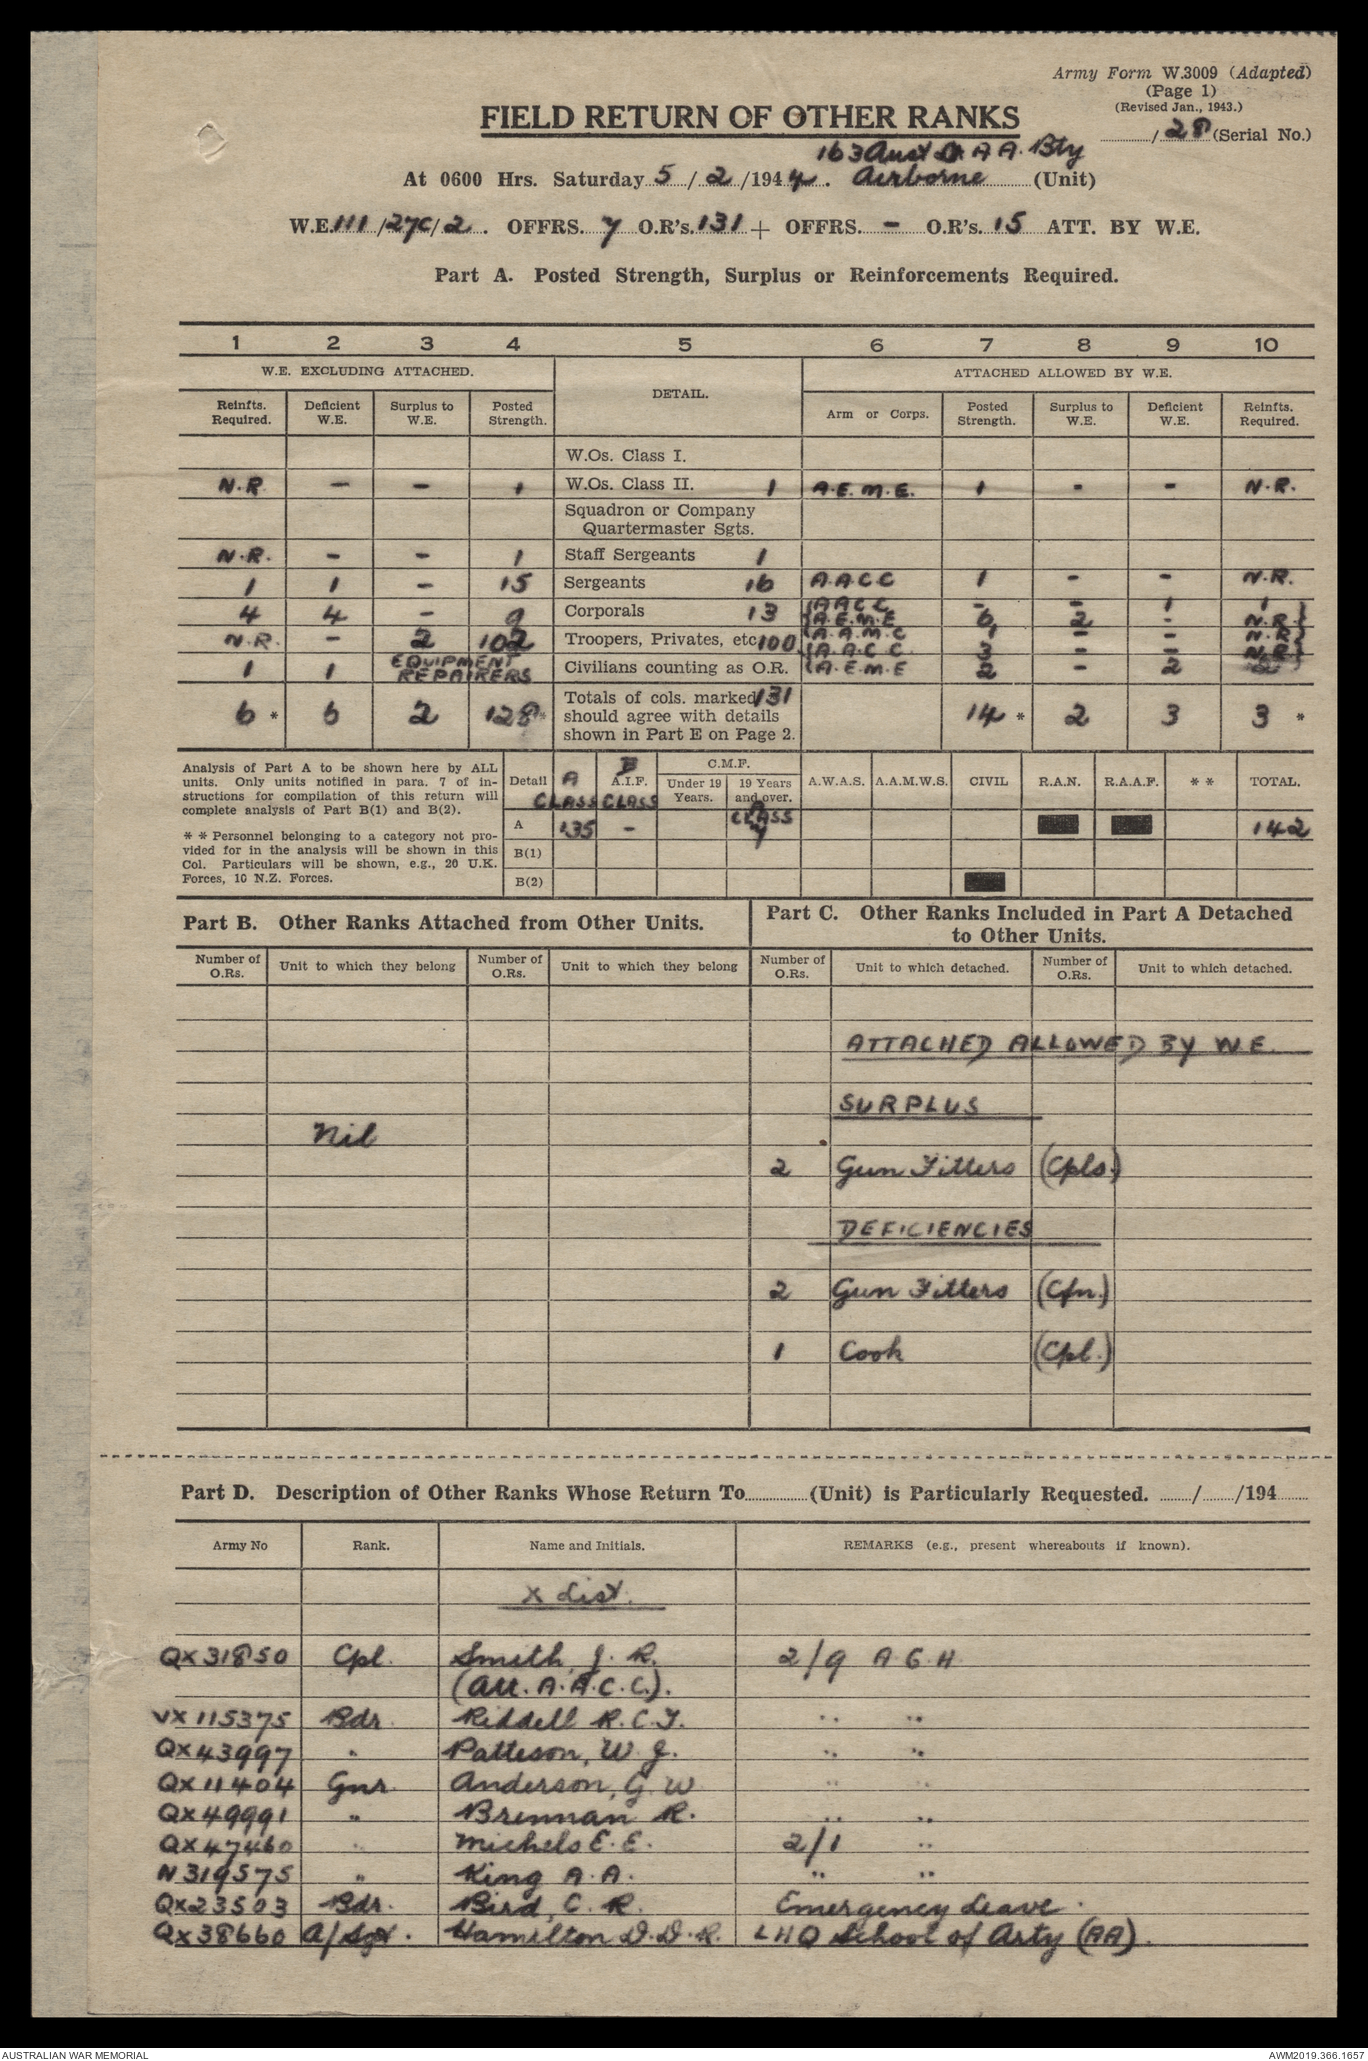 Army Form W.3009 (Adapted)
(Page 1)
(Revised Jan., 1943.)
FIELD RETURN OF OTHER RANKS
/28 (Serial No.)
163 Aust Lt A A. Bty
At 0600 Hrs. Saturday 5/2/1944. Airborne (Unit)
W.E. 111/27C/2. OFFRS. 7 O.R's. 131 + OFFRS. - O.R's. 15 ATT. BY W.E.
Part A. Posted Strength, Surplus or Reinforcements Required.
1 2 3 4 5 6 7 8 9 10
W.E. EXCLUDING ATTACHED. DETAIL. ATTACHED ALLOWED BY W.E.
Reinfts. Required. Deficient W.E. Surplus to W.E. Posted Strength. Arm or Corps. Posted Strength. Surplus to W.E. Deficient W.E. Reinfts. Required.
W.Os. Class I.
N.R. - - 1 W.Os. Class II. 1 A.E.M.E. 1 - - N.R.
Squadron or Company
Quartermaster Sgts.
N.R. - - 1 Staff Sergeants 1
1 1 - 15 Sergeants 16 A.A.C.C 1 - - N.R.
4 4 - 9 Corporals 13 (A A C C - - 1 1
(A.E.M.E 6 2 - N.R.)
N.R. - 2 102 Troopers, Privates, etc. 100 (A.A.M.C 1 - - N.R.
(A.A.C.C. 3 - - N.R.
1 1 EQUIPMENT REPAIRERS Civilians counting as O.R. (A.E.M.E 2 - 2 2
6 * 6 2 128 * Totals of cols. marked 131 14 * 2 3 3 *
should agree with details
shown in Part E on Page 2.
Analysis of Part A to be shown here by ALL
units. Only units notified in para. 7 of in-
structions for compilation of this return will
complete analysis of Part B(1) and B(2).
* * Personnel belonging to a category not pro-
vided for in the analysis will be shown in this
Col. Particulars will be shown, e.g., 20 U.K.
Forces, 10 N.Z. Forces.
Detail A CLASS B A.I.F. CLASS C.M.F. Under 19 Years. 19 Years and over. A CLASS A.W.A.S. A.A.M.W.S. CIVIL R.A.N. R.A.A.F. * * TOTAL.
A 135 - 7 142
B(1)
B(2)
Part B. Other Ranks Attached from Other Units.
Part C. Other Ranks Included in Part A Detached
to Other Units.
Number of O.Rs. Unit to which they belong Number of O.Rs. Unit to which they belong Number of O.Rs. Unit to which detached. Number of O.Rs. Unit to which detached.
ATTACHED ALLOWED BY W.E.
SURPLUS
Nil
2 Gun Fitters (Cpls.)
DEFICIENCIES
2 Gun Fitters (Cfn.)
1 Cook (Cpl.)
Part D. Description of Other Ranks Whose Return To............(Unit) is Particularly Requested. ......./......./194.......
Army No Rank. Name and Initials. REMARKS (e.g., present whereabouts if known).
X List.
QX31850 Cpl. Smith, J. R. 2/9 A G H
(Att. A.A.C.C.).
VX115375 Bdr. Riddell R.C.J. " "
QX43997 " Patteson, W. J. " "
QX11404 Gnr. Anderson, G W " "
QX49991 " Brennan R. " "
QX47460 " Michels E. E. 2/1 "
N319575 " King A. A. " "
QX23503 Bdr. Bird, C. R. Emergency Leave.
QX38660 A/Sgt. Hamilton D.D.R. LHQ School of Arty (AA).
AUSTRALIAN WAR MEMORIAL
AWM2019.366.1657